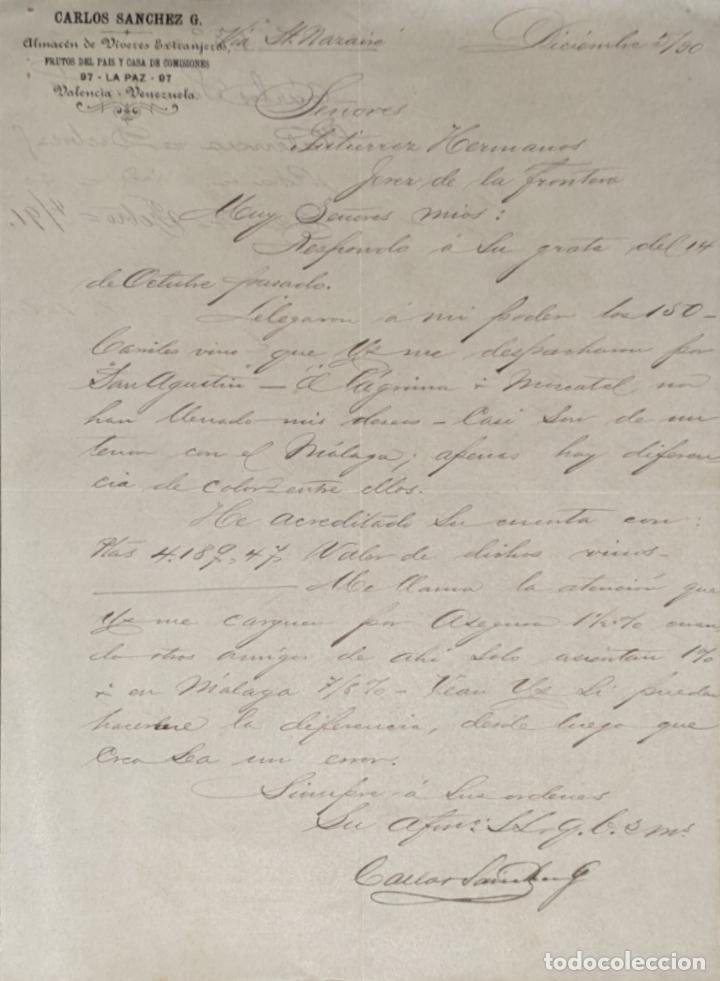 CARLOS SANCHEZ G.
Almacén de Víveres Extranjeros,
FRUTOS DEL PAIS Y CASA DE COMISIONES
97 - LA PAZ - 97
Valencia - Venezuela.
Vía St. Nazaire Diciembre /90
Señores
Gutierrez Hermanos
Jerez de la Frontera
Muy Señores mios:
Respondo á su grata del 14
de Octubre pasado.
Llegaron á mi poder los 150-
barriles vino que Vs me despacharon por
"San Agustin" - El Lágrima i Moscatel no
han llenado mis deseos - Casi son de un
tenor con el Málaga; apenas hay diferen
cia de color entre ellos.
He acreditado su cuenta con:
Ptas 4.189,47, valor de dichos vinos-
Me llama la atención que
Vs me carguen por Aseguro 1½% cuan
do otros amigos de ahi solo asientan 1%
i en Málaga 7/8% - Vean Vs si pueden
hacerme la diferencia, desde luego que
crea sea un error.
Siempre á sus ordenes
Su afmo. S.S. q. b. s. ms.
Carlos Sanchez G
4/91.
todocoleccion
todocoleccion.net